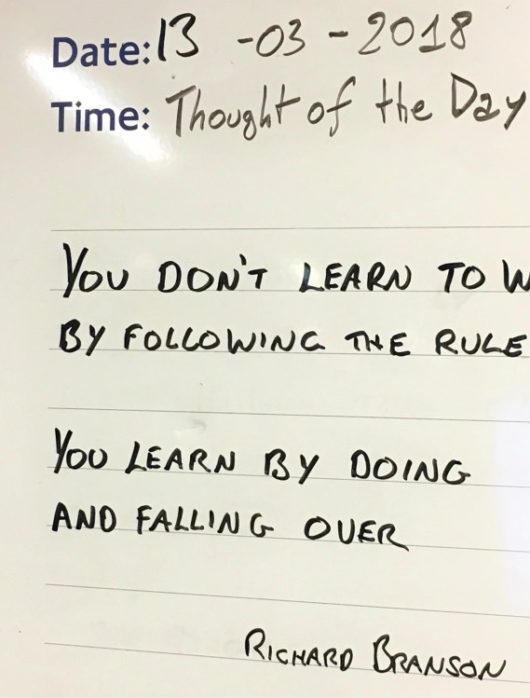 Date: 13 -03 - 2018
Time: Thought of the Day
YOU DON'T LEARN TO W
BY FOLLOWING THE RULE
YOU LEARN BY DOING
AND FALLING OVER
RICHARD BRANSON